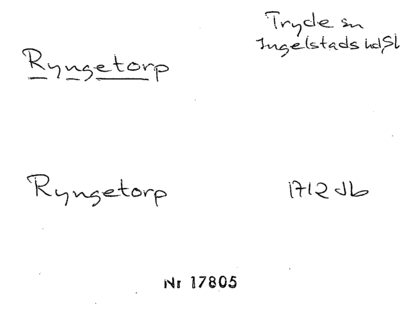 Ryngetorp
Tryde sn
Ingelstads hd, Sk
Ryngetorp
1712 Jb
Nr 17805